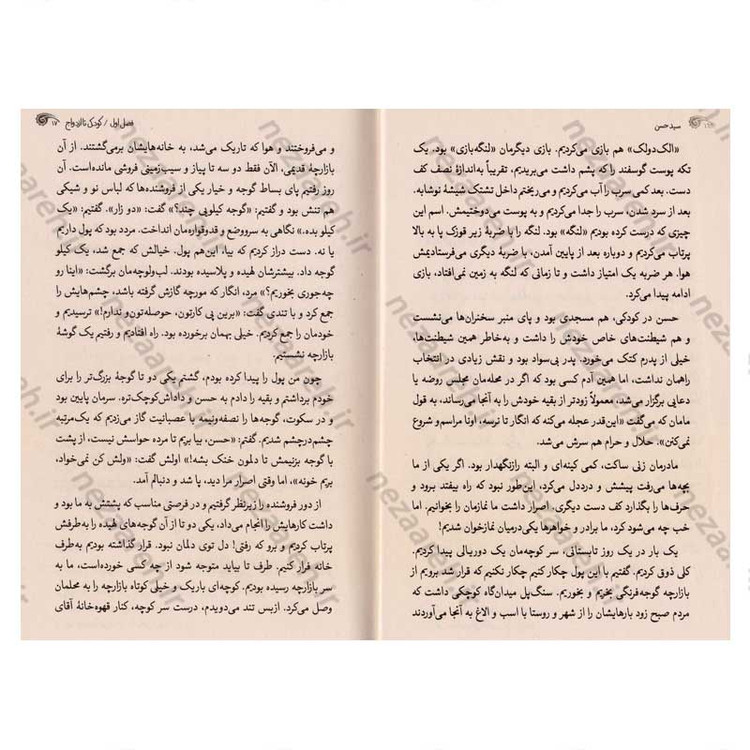 سید حسن
«الک‌دولک» هم بازی می‌کردیم. بازی دیگرمان «لنگه‌بازی» بود. یک
تکه پوست گوسفند را که پشم داشت می‌بریدیم، تقریباً به‌اندازهٔ نصف کف
دست. بعد کمی سرب را آب می‌کردیم و می‌ریختم داخل تشتک شیشهٔ نوشابه.
بعد از سرد شدن، سرب را جدا می‌کردیم و به پوست می‌دوختیمش. اسم این
چیزی که درست کرده بودیم «لنگه» بود. لنگه را با ضربهٔ زیر قوزک پا به بالا
پرتاب می‌کردیم و دوباره بعد از پایین آمدن، با ضربهٔ دیگری می‌فرستادیمش
هوا. هر ضربه یک امتیاز داشت و تا زمانی که لنگه به زمین نمی‌افتاد، بازی
ادامه پیدا می‌کرد.
حسن در کودکی، هم مسجدی بود و پای منبر سخنران‌ها می‌نشست
و هم شیطنت‌های خاص خودش را داشت و به‌خاطر همین شیطنت‌ها،
خیلی از پدرم کتک می‌خورد. پدر بی‌سواد بود و نقش زیادی در انتخاب
راهمان نداشت، اما همین آدم کسی بود که اگر در محله‌مان مجلس روضه یا
دعایی برگزار می‌شد، معمولاً زودتر از بقیه خودش را به آنجا می‌رساند، به قول
مامان که می‌گفت «این‌قدر عجله می‌کنه که انگار تا نرسه، اونا مراسم و شروع
نمی‌کنن». حلال و حرام هم سرش می‌شد.
مادرمان زنی ساکت، کمی کینه‌ای و البته رازنگهدار بود. اگر یکی از ما
بچه‌ها می‌رفت پیشش و درددل می‌کرد، این‌طور نبود که راه بیفتد برود و
حرف‌ها را بگذارد کف دست دیگری. اصرار داشت ما نمازمان را بخوانیم. اما
خب چه می‌شود کرد، ما برادر و خواهرها یکی‌درمیان نمازخوان شدیم!
یک بار در یک روز تابستانی، سر کوچه‌مان یک دوریالی پیدا کردیم.
کلی ذوق کردیم. گفتیم با این پول چکار کنیم چکار نکنیم که قرار شد برویم از
بازارچه گوجه‌فرنگی بخریم و بخوریم. سنگ‌پل میدان‌گاه کوچکی داشت که
مردم صبح زود بارهایشان را از شهر و روستا با اسب و الاغ به آنجا می‌آوردند
فصل اول / کودکی تا ازدواج ۱۷
و می‌فروختند و هوا که تاریک می‌شد، به خانه‌هایشان برمی‌گشتند. از آن
بازارچهٔ قدیمی، الآن فقط دو سه تا پیاز و سیب‌زمینی فروشی مانده‌است. آن
روز رفتیم پای بساط گوجه و خیار یکی از فروشنده‌ها که لباس نو و شیکی
هم تنش بود و گفتیم: «گوجه کیلویی چند؟» گفت: «دو زار». گفتیم: «یک
کیلو بده.» نگاهی به سرووضع و قدوقواره‌مان انداخت. مردد بود که پول داریم
یا نه. دست دراز کردیم که بیا، این‌هم پول. خیالش که جمع شد، یک کیلو
گوجه داد. بیشترشان لهیده و پلاسیده بودند. لب‌ولوچه‌مان برگشت: «اینا رو
چه‌جوری بخوریم؟» مرد، انگار که مورچه گازش گرفته باشد، چشم‌هایش را
جمع کرد و با تندی گفت: «برین پی کارتون، حوصله‌تون‌و ندارم!» ترسیدیم و
خودمان را جمع کردیم. خیلی بهمان برخورده بود. راه افتادیم و رفتیم یک گوشهٔ
بازارچه نشستیم.
چون من پول را پیدا کرده بودم، گشتم یکی دو تا گوجهٔ بزرگ‌تر را برای
خودم برداشتم و بقیه را دادم به حسن و داداش کوچک‌تره. سرمان پایین بود
و در سکوت، گوجه‌ها را نصفه‌ونیمه با عصبانیت گاز می‌زدیم که یک‌مرتبه
چشم‌درچشم شدیم. گفتم: «حسن، بیا بریم تا مرده حواسش نیست، از پشت
با گوجه بزنیمش تا دلمون خنک بشه!» اولش گفت: «ولش کن نمی‌خواد،
بریم خونه»، اما وقتی اصرار مرا دید، پا شد و دنبالم آمد.
از دور فروشنده را زیرنظر گرفتیم و در فرصتی مناسب که پشتش به ما بود و
داشت کارهایش را انجام می‌داد، یکی دو تا از آن گوجه‌های لهیده را به‌طرفش
پرتاب کردیم و برو که رفتی! دل توی دلمان نبود. قرار گذاشته بودیم به‌طرف
خانه فرار کنیم. طرف تا بیاید متوجه شود از چه کسی خورده‌است، ما به
سر بازارچه رسیده بودیم. کوچه‌ای باریک و خیلی کوتاه بازارچه را به محلمان
وصل می‌کرد. ازبس تند می‌دویدم، درست سر کوچه، کنار قهوه‌خانهٔ آقای
nezaareh.ir